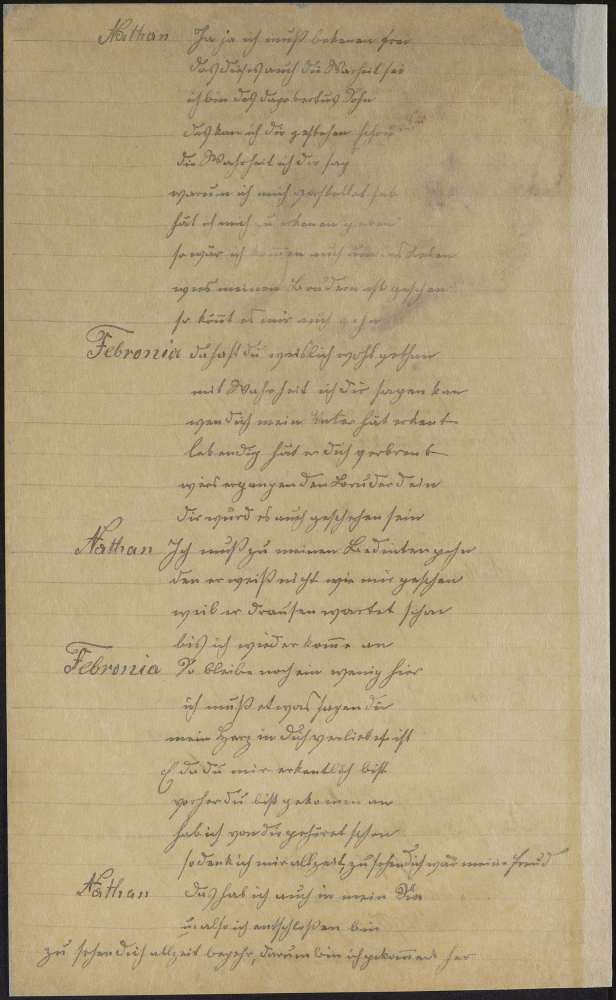 Nathan Ja ja ich muß bekenen frei
das dieses auch die Warheit sei
ich bin des Dagobertus Sohn
das kan ich dir gestehen schon
die Wahrheit ich dir sag
warum ich mich verstellet hab
hät ich mich zu erkenen geben
so wär ich kommen auch um das Leben
was meinen Brudern ist geschen
so könt es mir auch gehn
Febronia da hast du weislich wohl gethan
mit Wahrheit ich dir sagen kan
wen dich mein Vater hät erkent
lebendig hät er dich verbrent
wies ergangen den Bruder dein
dir würd es auch geschehen sein
Nathan Ich muß zu meinen Bedienten gehn
den er weiß nicht wie mir geschen
weil er drausen wartet schon
bis ich wieder komme an
Febronia So bleibe noch ein wenig hier
ich muß etwas sagen dir
mein Herz in dich verliebet ist
da du mir erkentlich bist
vorher du bist gekommen an
hab ich von dir gehöret schon
so denk ich mir allzeit, zu sehen dich wär meine Freud
Nathan das hab ich auch in mein Sin
u. also ich entschloßen bin
zu sehen dich allzeit begehr, darum bin ich gekommen her